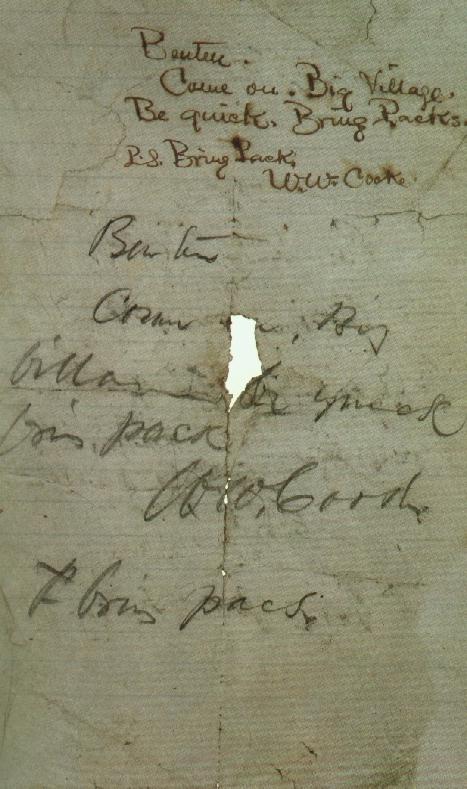 Benteen.
Come on. Big Village.
Be quick. Bring Packs.
P.S. Bring Packs
W.W. Cooke
Benteen
Come on. Big
Village be quick
bring packs
W.W. Cooke
P bring pacs.